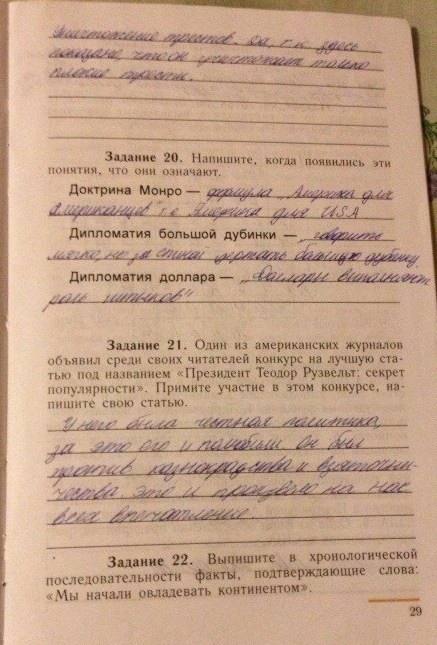 Уничтожение трестов. Да, т.к. здесь
показано, что он уничтожает только
плохие тресты.
Задание 20. Напишите, когда появились эти
понятия, что они означают.
Доктрина Монро — формула „Америка для
Американцев" т.е. Америка для USA
Дипломатия большой дубинки — „говорить
мягко, но за спиной держать большую дубинку.
Дипломатия доллара — „Доллары выполняют
роль штыков"
Задание 21. Один из американских журналов
объявил среди своих читателей конкурс на лучшую ста-
тью под названием «Президент Теодор Рузвельт: секрет
популярности». Примите участие в этом конкурсе, на-
пишите свою статью.
У него была честная политика,
за это его и полюбили. Он был
против казнокрадства и взяточни-
чества. Это и произвело на нас
всех впечатление.
Задание 22. Выпишите в хронологической
последовательности факты, подтверждающие слова:
«Мы начали овладевать континентом».
29